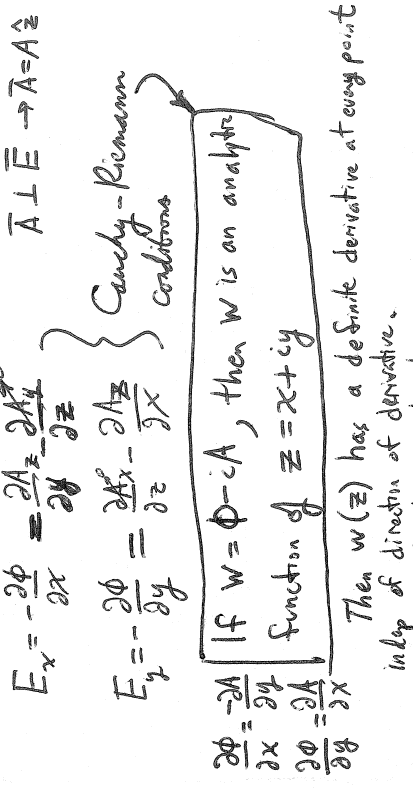 A̅ ⊥ E̅ → A̅ = A ẑ
E_x = -∂φ/∂x = ∂A_z/∂y - ∂A_y/∂z
E_y = -∂φ/∂y = ∂A_x/∂z - ∂A_z/∂x
Cauchy-Riemann
conditions
∂φ/∂x = -∂A/∂y
∂φ/∂y = ∂A/∂x
If w = φ - iA, then w is an analytic
function of z = x + iy
Then w(z) has a definite derivative at every point
indep of direction of derivative.